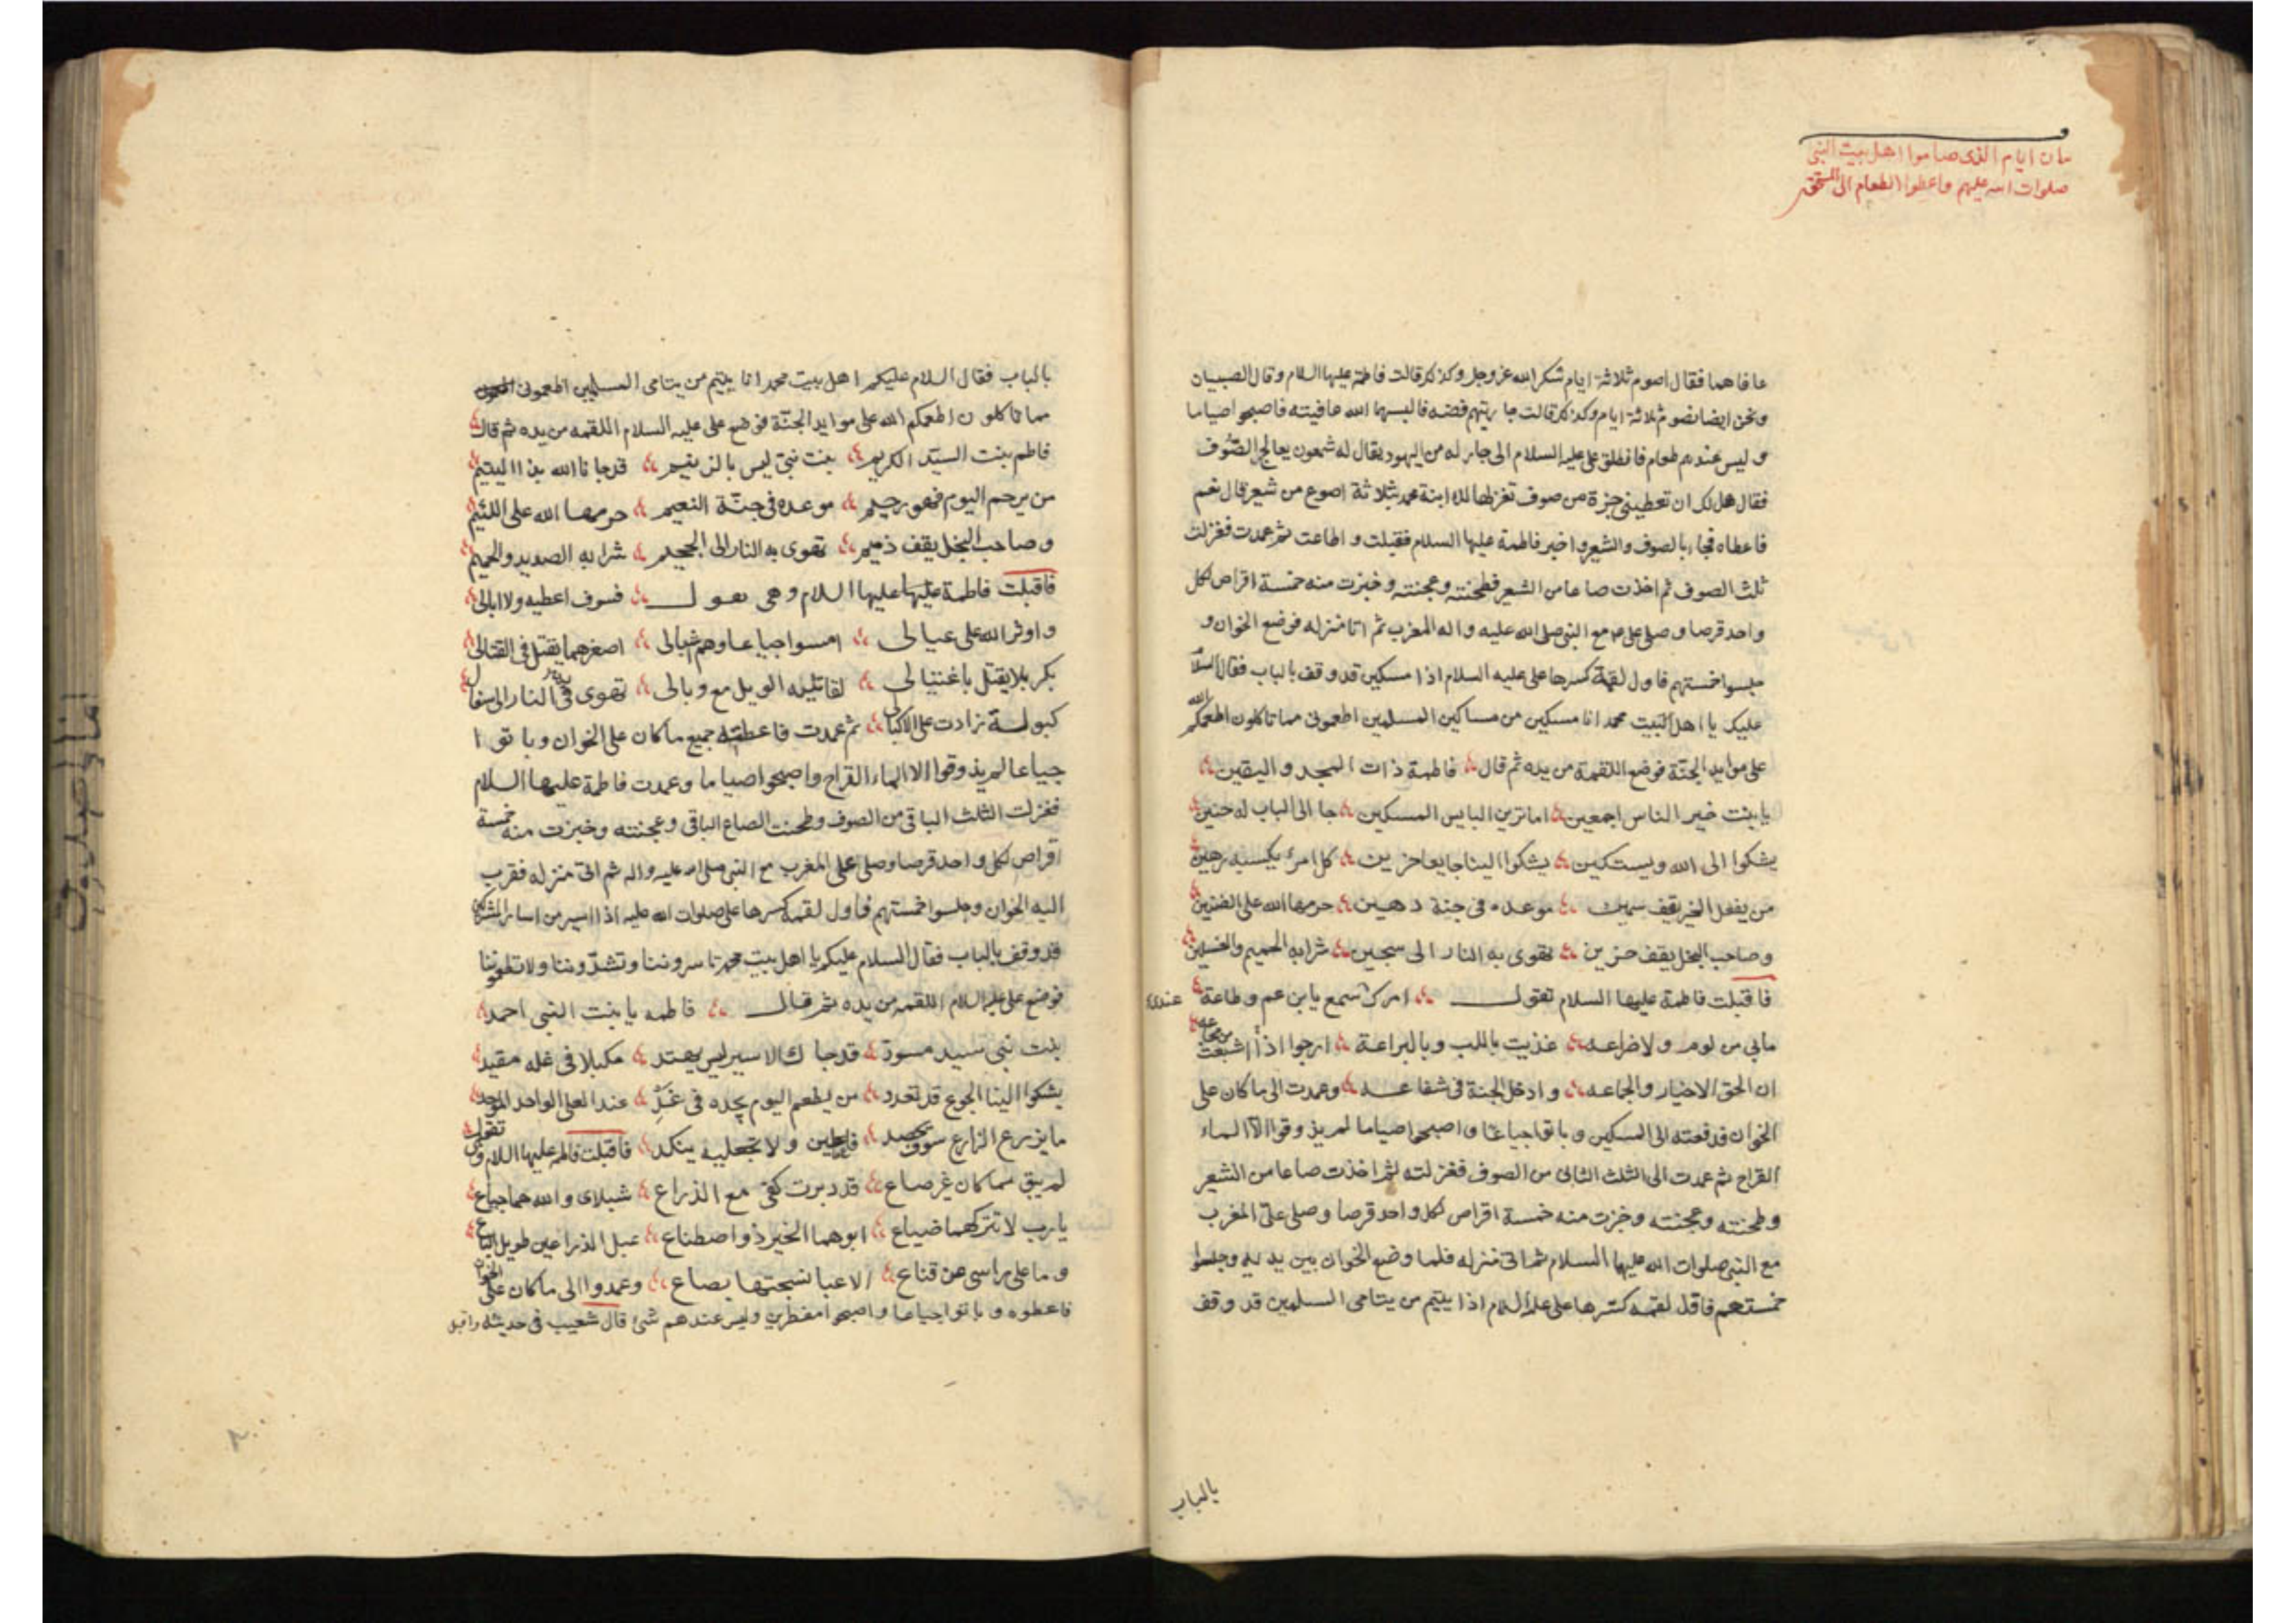 بيان ايام الذى صاموا اهل بيت النبى
صلوات الله عليهم واعطوا الطعام الى المستحق
عافاهما فقال اصوم ثلاثة ايام شكرا لله عز وجل وكذلك قالت فاطمة عليها السلام وقال الصبيان
ونحن ايضا نصوم ثلاثة ايام وكذلك قالت جاريتهم فضه فالبسهما الله عافيته فاصبحوا صياما
وليس عندهم طعام فانطلق على عليه السلام الى جار له من اليهود يقال له شمعون يعالج الصوف
فقال هل لك ان تعطينى جزة من صوف تغزلها لك ابنة محمد بثلاثة اصوع من شعير قال نعم
فاعطاه فجاء بالصوف والشعير واخبر فاطمة عليها السلام فقبلت واطاعت ثم عمدت فغزلت
ثلث الصوف ثم اخذت صاعا من الشعير فطحنته وعجنته وخبزت منه خمسة اقراص لكل
واحد قرصا وصلى على مع النبى صلى الله عليه واله المغرب ثم اتا منزله فوضع الخوان و
جلسوا خمستهم فاول لقمة كسرها على عليه السلام اذا مسكين قد وقف بالباب فقال السلام
عليك يا اهل البيت محمد انا مسكين من مساكين المسلمين اطعمونى مما تاكلون اطعمكم الله
على موايد الجنة فوضع اللقمة من يده ثم قال فاطمة ذات المجد واليقين
يا بنت خير الناس اجمعين اما ترين البايس المسكين جا الى الباب له حنين
يشكوا الى الله ويستكين يشكوا الينا جايعا حزين كل امرئ بكسبه رهين
من يفعل الخير يقف سمين موعده فى جنة دهين حرمها الله على الضنين
وصاحب البخل يقف حزين تهوى به النار الى سجين شرابه الحميم والغسلين
فاقبلت فاطمة عليها السلام تقول امرك سمع يابن عم وطاعة عندى
مابى من لوم ولا ضراعه غذيت باللب وبالبراعة ارجوا اذا اشبعت من مجاعه
ان الحق الاخيار والجماعه وادخل الجنة فى شفاعه وعمدت الى ما كان على
الخوان فدفعته الى المسكين وباتوا جياعا واصبحوا صياما لم يذوقوا الا الماء
القراح ثم عمدت الى الثلث الثانى من الصوف فغزلته ثم اخذت صاعا من الشعير
وطحنته وعجنته وخبزت منه خمسة اقراص لكل واحد قرصا وصلى على المغرب
مع النبى صلوات الله عليهما السلام ثم اتى منزله فلما وضع الخوان بين يديه وجلسوا
خمستهم فاول لقمه كسرها على عليه السلام اذا يتيم من يتامى المسلمين قد وقف
بالباب
بالباب فقال السلام عليكم اهل بيت محمد انا يتيم من يتامى المسلمين اطعمونى
مما تاكلون اطعمكم الله على موايد الجنة فوضع على عليه السلام اللقمه من يده ثم قال
فاطم بنت السيد الكريم بنت نبى ليس بالزنيم قد جانا الله بذا اليتيم
من يرحم اليوم فهو رحيم موعده فى جنة النعيم حرمها الله على اللئيم
وصاحب البخل يقف ذميم تهوى به النار الى الجحيم شرابه الصديد والحميم
فاقبلت فاطمة عليها السلام وهى تقول فسوف اعطيه ولا ابالى
واوثر الله على عيالى امسوا جياعا وهم اشبالى اصغرهما يقتل فى القتال
بكربلا يقتل باغتيالى لقاتليه الويل مع وبالى تهوى فى النار الى سفال
كبوله زادت على الاكبالى ثم عمدت فاعطته جميع ما كان على الخوان وباتوا
جياعا لم يذوقوا الا الماء القراح واصبحوا صياما وعمدت فاطمة عليها السلام
فغزلت الثلث الباقى من الصوف وطحنت الصاع الباقى وعجنته وخبزت منه خمسة
اقراص لكل واحد قرصا وصلى على المغرب مع النبى صلى الله عليه واله ثم اتى منزله فقرب
اليه الخوان وجلسوا خمستهم فاول لقمة كسرها على صلوات الله عليه اذا اسير من اسارا المشركين
قد وقف بالباب فقال السلام عليكم يا اهل بيت محمد تاسروننا وتشدوننا ولا تطعموننا
فوضع على عليه السلام اللقمه من يده ثم قال فاطمه يا بنت النبى احمد
بنت نبى سيد مسود قد جاك الاسير ليس يهتد مكبلا فى غله مقيد
يشكوا الينا الجوع قد تقدد من يطعم اليوم يجده فى غد عند العلى الواحد الموحد
ما يزرع الزارع سوف يحصد فاعطين ولا تجعليه ينكد فاقبلت فاطمه عليها السلام وهى تقول
لم يبق مما كان غير صاع قد دبرت كفى مع الذراع شبلاى والله هما جياع
يا رب لا تتركهما ضياع ابوهما الخير ذو اصطناع عبل الذراعين طويل الباع
وما على راسى من قناع الا عبا نسجتها بصاع وعمدوا الى ما كان على الخوان
فاعطوه وباتوا جياعا واصبحوا مفطرين وليس عندهم شئ قال شعيب فى حديثه واقبل